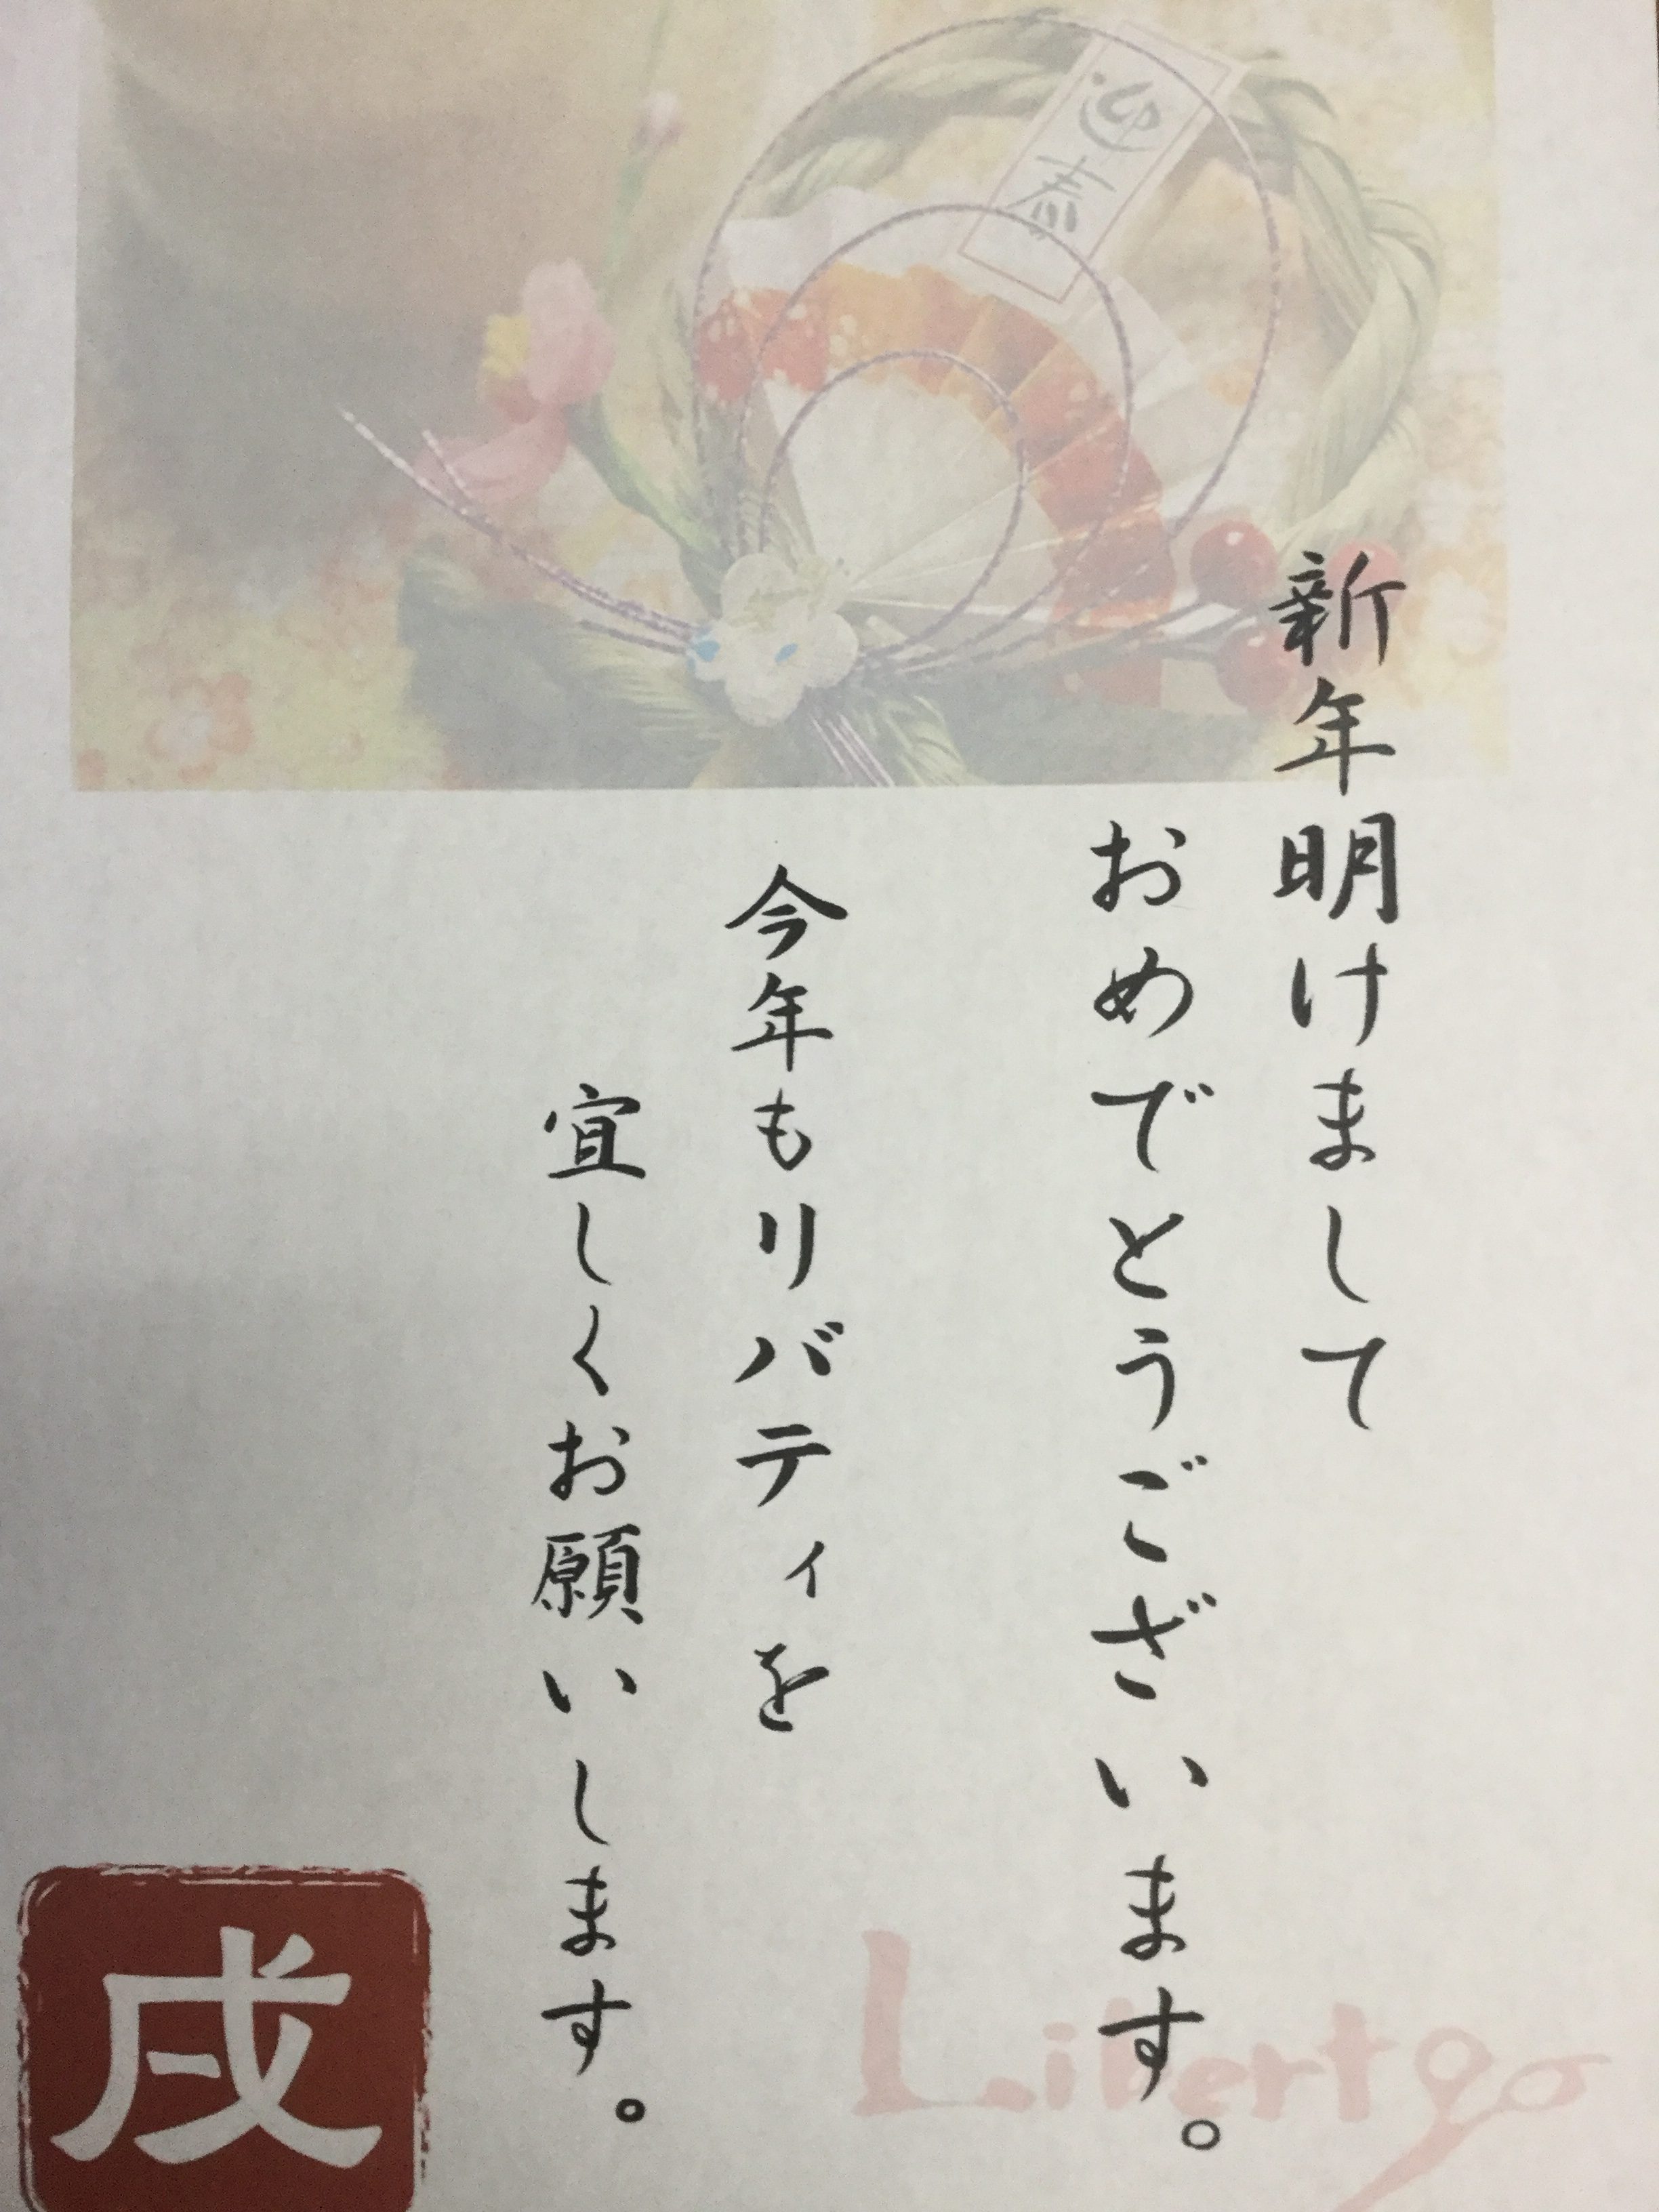 迎春
新年明けまして
おめでとうございます。
今年もリバティを
宜しくお願いします。
Liberty
戌